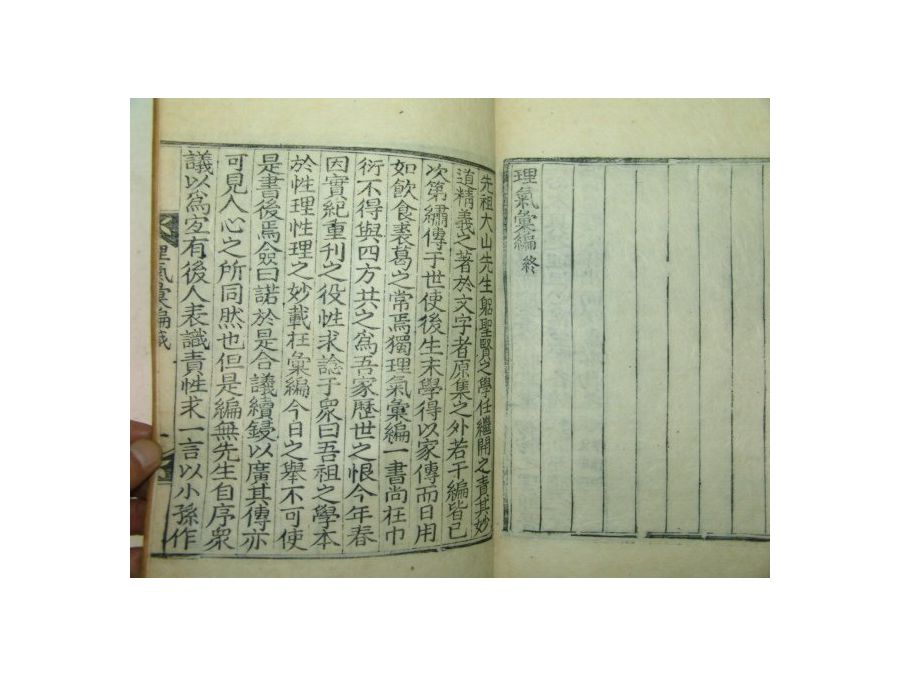 理氣彙編 終
先祖大山先生躬聖賢之學任繼開之責其妙
道精義之著於文字者原集之外若干編皆已
次第繡傳于世使後生末學得以家傳而日用
如飲食裘葛之常焉獨理氣彙編一書尚在巾
衍不得與四方共之爲吾家歷世之恨今年春
因實紀重刊之役性求諗于衆曰吾祖之學本
於性理性理之妙載在彙編今日之舉不可使
是書後焉僉曰諾於是合議續鋟以廣其傳亦
可見人心之所同然也但是編無先生自序衆
議以爲宜有後人表識責性求一言以小孫作
理氣彙編識
一